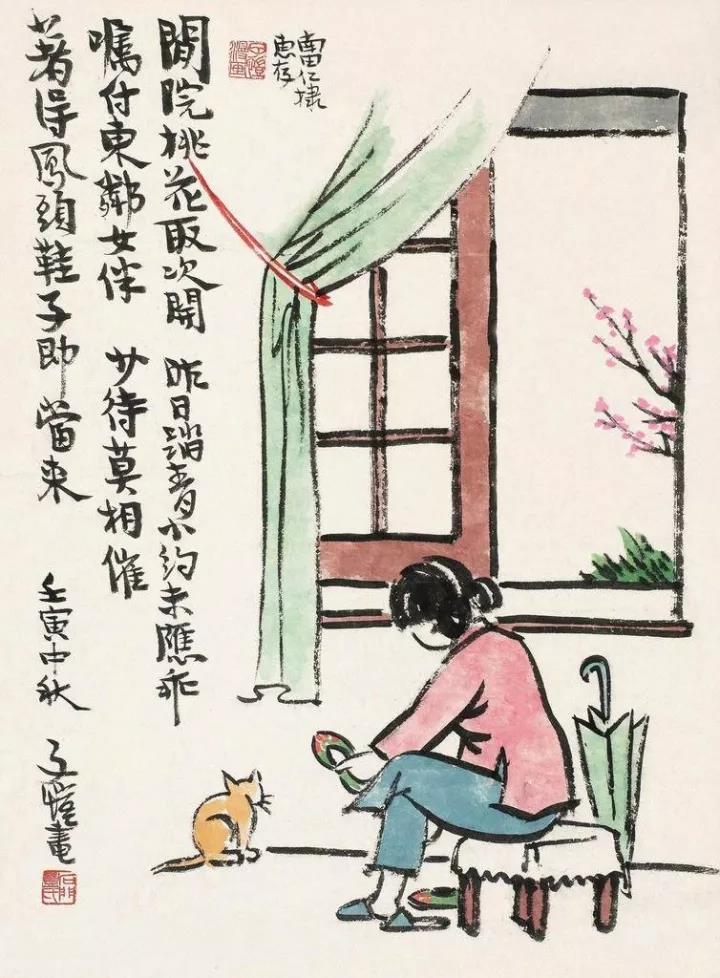 仁棣
惠存
閒院桃花取次開 昨日踏青小約未應乖
囑付東鄰女伴 少待莫相催
著得鳳頭鞋子即當來 壬寅中秋 子愷畫